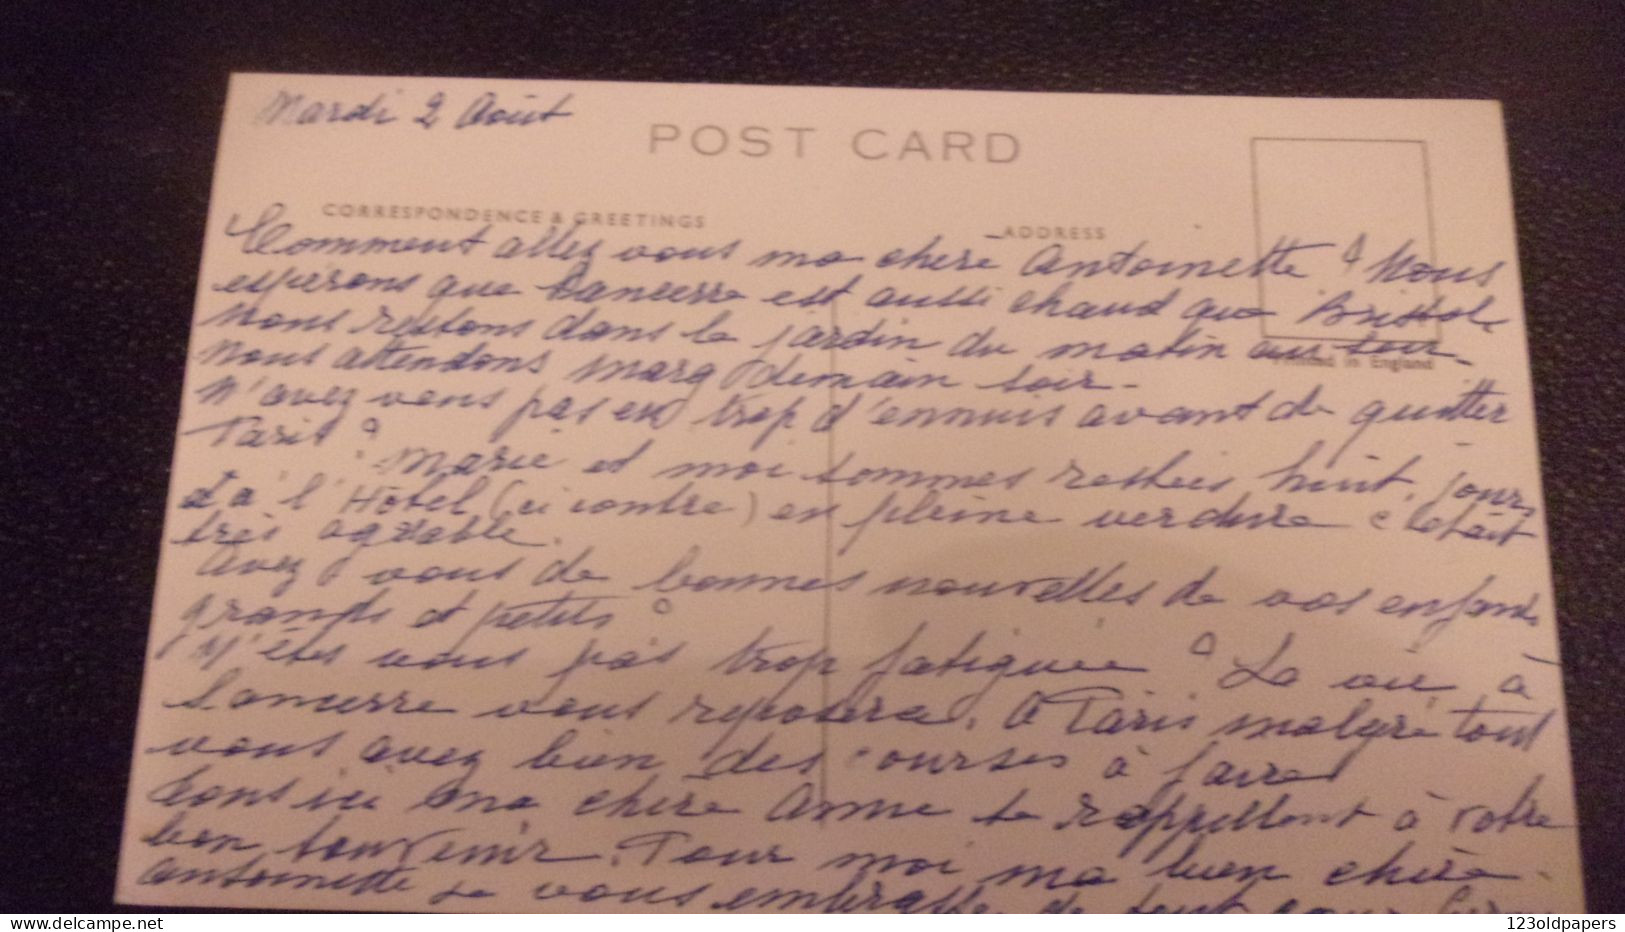 Mardi 2 Août
POST CARD
CORRESPONDENCE & GREETINGS
ADDRESS
Comment allez vous ma chère Antoinette ? Nous
espérons que Sancerre est aussi chaud que Bristol
Nous restons dans le jardin du matin au soir.
Printed in England
Nous attendons Marg demain soir.
N'avez vous pas eu trop d'ennuis avant de quitter
Paris ? Marie et moi sommes restées huit jours
à l'Hôtel (ci contre) en pleine verdure c'était
très agréable.
Avez vous de bonnes nouvelles de vos enfants
grands et petits ?
N'êtes vous pas trop fatiguée ? La vie à
Sancerre vous reposera. A Paris malgré tout
vous avez bien des courses à faire
Tous ici ma chère Amie se rappellent à votre
bon souvenir. Pour moi ma bien chère
Antoinette je vous embrasse de tout cœur
Delcampe.net
123oldpapers